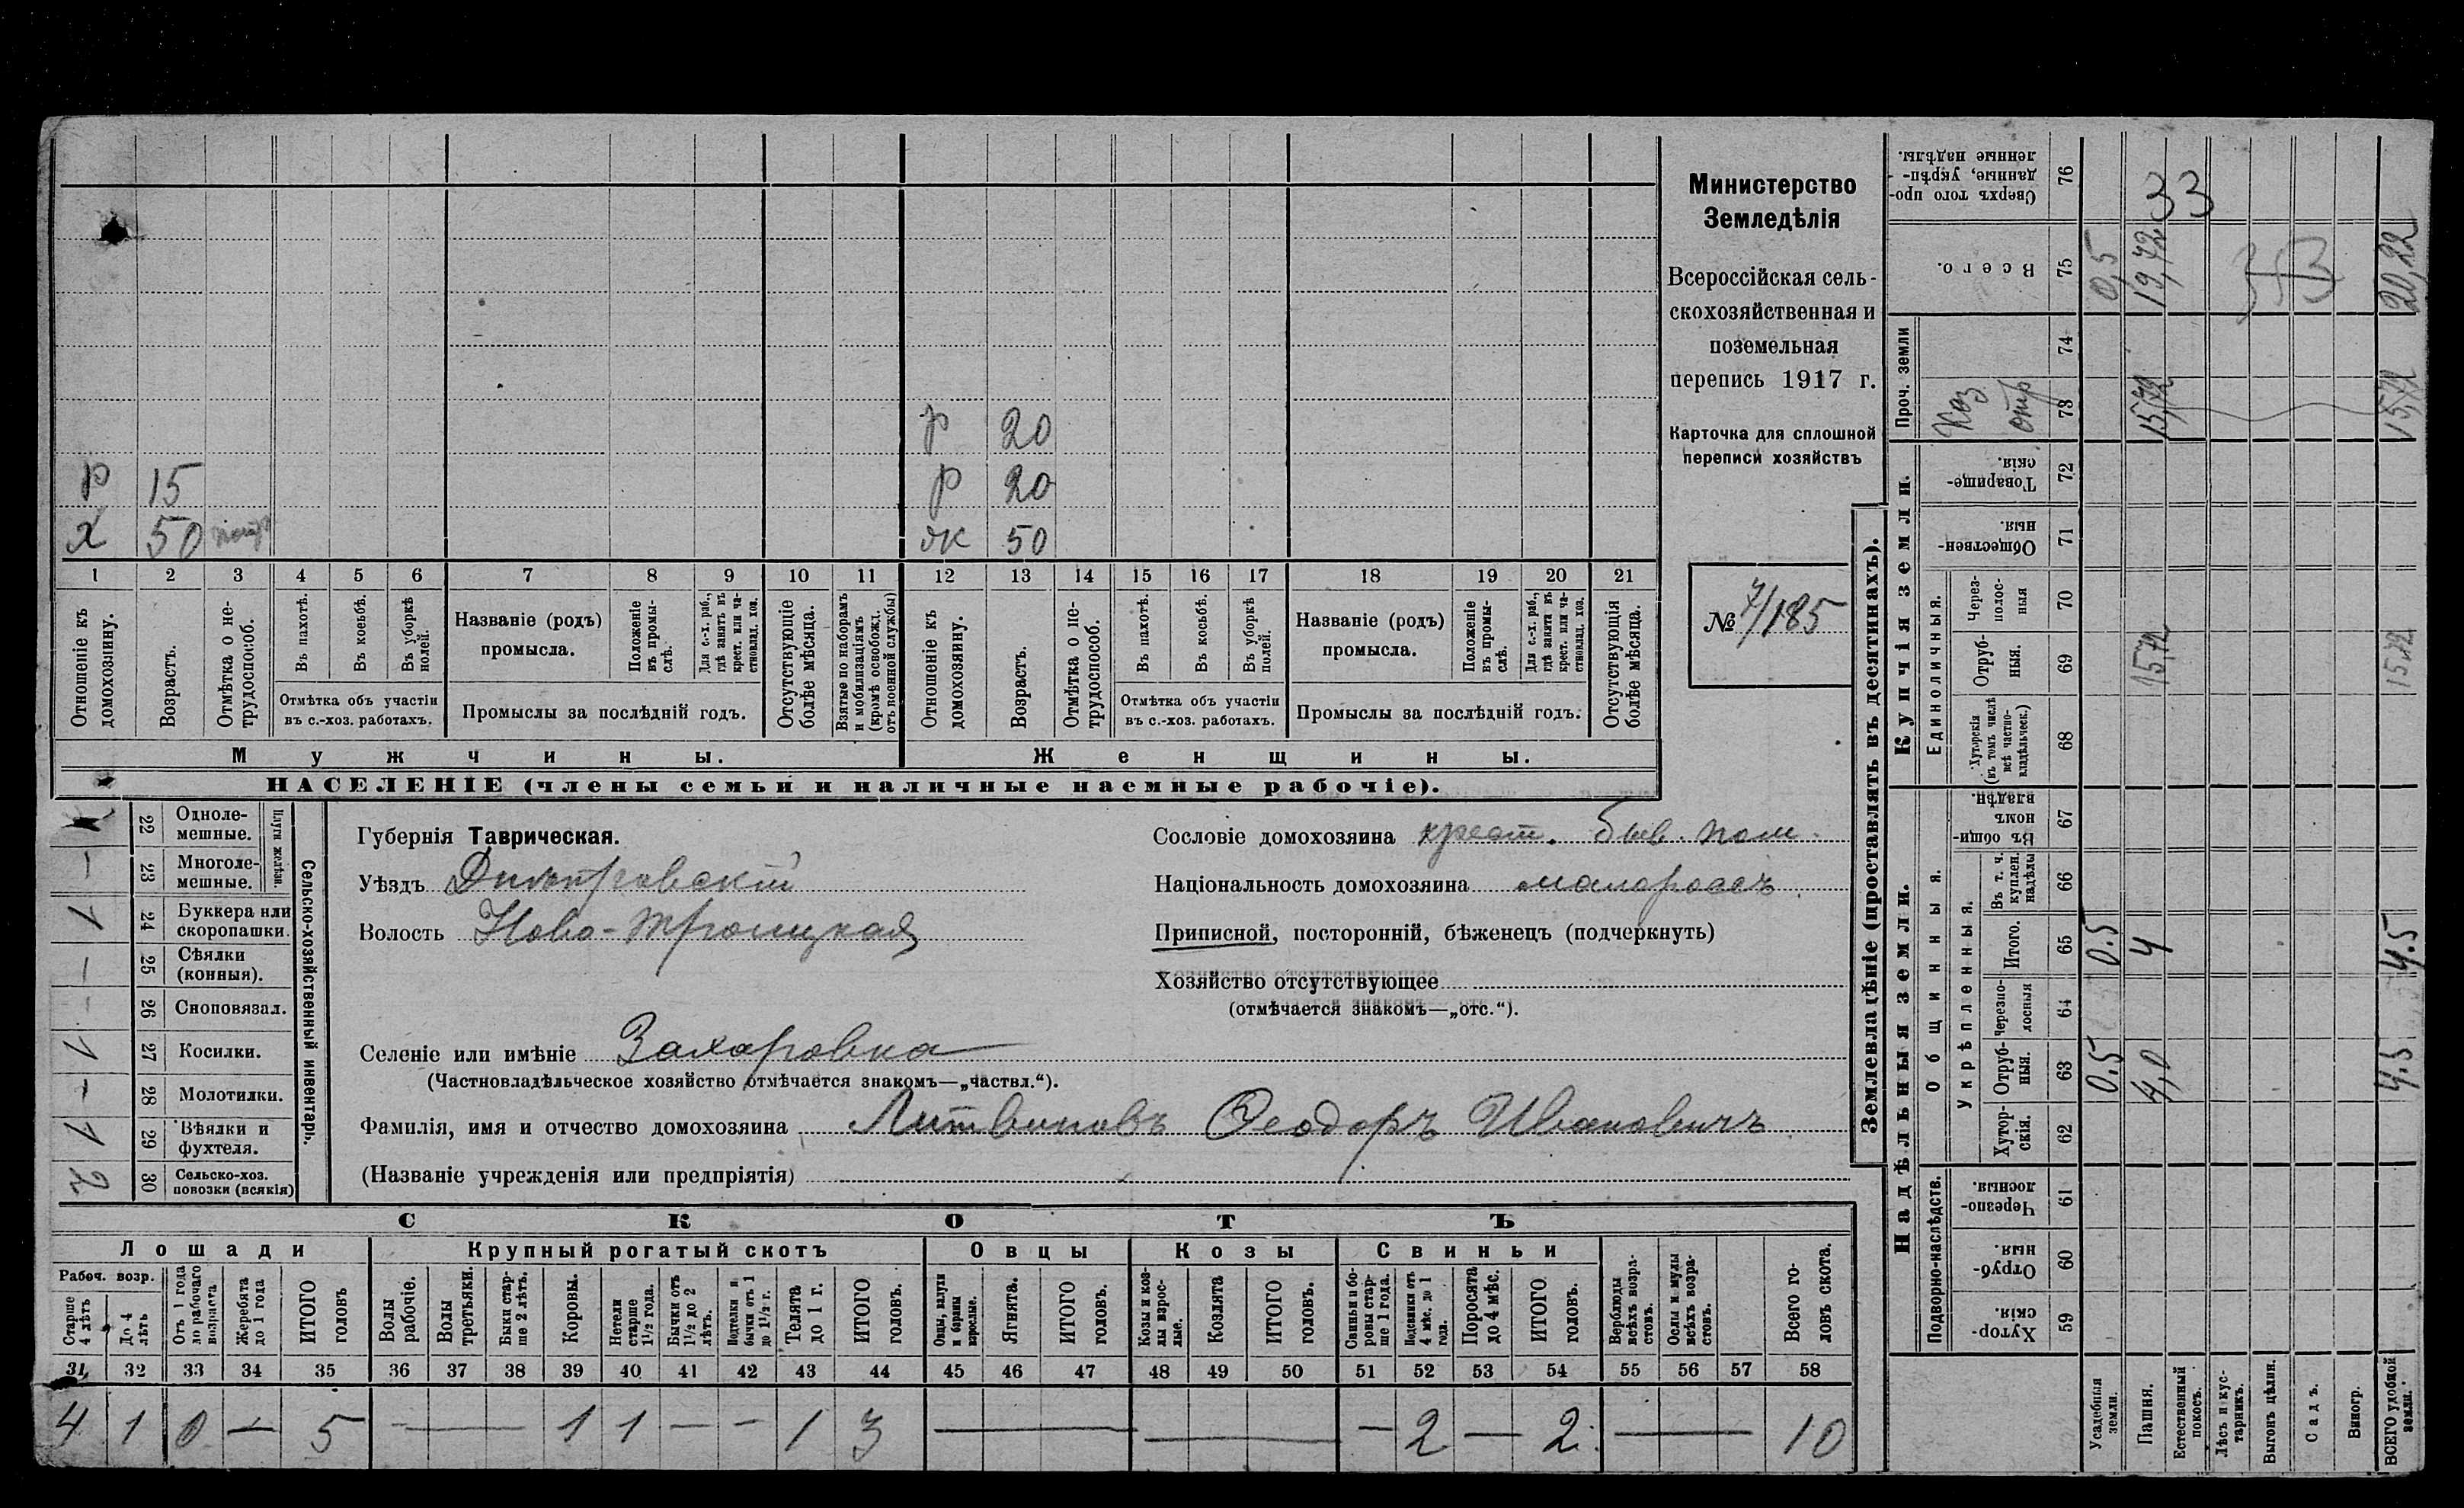 р 20
р 15 р 20
х 50 ж 50
1 2 3 4 5 6 7 8 9 10 11 12 13 14 15 16 17 18 19 20 21
Отношеніе къ домохозяину.
Возрастъ.
Отмѣтка о нетрудоспособ.
Въ пахотѣ.
Въ косьбѣ.
Въ уборкѣ полей.
Отмѣтка объ участіи
въ с.-хоз. работахъ.
Названіе (родъ)
промысла.
Положеніе въ промыслѣ.
Для с.-х. раб., гдѣ занятъ въ крест. или частновлад. хоз.
Промыслы за послѣдній годъ.
Отсутствующіе болѣе мѣсяца.
Взятые по наборамъ и мобилизаціямъ (кромѣ освобожд. отъ военной службы)
Отношеніе къ домохозяину.
Возрастъ.
Отмѣтка о нетрудоспособ.
Въ пахотѣ.
Въ косьбѣ.
Въ уборкѣ полей.
Отмѣтка объ участіи
въ с.-хоз. работахъ.
Названіе (родъ)
промысла.
Положеніе въ промыслѣ.
Для с.-х. раб., гдѣ занята въ крест. или частновлад. хоз.
Промыслы за послѣдній годъ.
Отсутствующія болѣе мѣсяца.
Мужчины. Женщины.
НАСЕЛЕНІЕ (члены семьи и наличные наемные рабочіе).
Министерство
Земледѣлія
Всероссійская сель-
скохозяйственная и
поземельная
перепись 1917 г.
Карточка для сплошной
переписи хозяйствъ
№ 7/185
Сельско-хозяйственный инвентарь.
Плуги желѣзн.
1 22 Одноле-
мешные.
— 23 Многоле-
мешные.
1 24 Буккера или
скоропашки.
— 25 Сѣялки
(конныя).
— 26 Сноповязал.
1 27 Косилки.
— 28 Молотилки.
1 29 Вѣялки и
фухтеля.
2 30 Сельско-хоз.
повозки (всякія)
Губернія Таврическая.
Уѣздъ Днѣпровскій
Волость Ново-Троицкая
Селеніе или имѣніе Захаровка
(Частновладѣльческое хозяйство отмѣчается знакомъ—„частвл.“).
Фамилія, имя и отчество домохозяина Литвиновъ Феодоръ Ивановичъ
(Названіе учрежденія или предпріятія)
Сословіе домохозяина крест. быв. пом.
Національность домохозяина малороссъ
Приписной, посторонній, бѣженецъ (подчеркнуть)
Хозяйство отсутствующее
(отмѣчается знакомъ—„отс.“).
СКОТЪ
Лошади Крупный рогатый скотъ Овцы Козы Свиньи
Рабоч. возр.
Старше 4 лѣтъ
До 4 лѣтъ
Отъ 1 года до рабочаго возраста
Жеребята до 1 года
ИТОГО головъ
Волы рабочіе.
Волы третьяки.
Быки старше 2 лѣтъ.
Коровы.
Нетели старше 1½ года.
Бычки отъ 1½ до 2 лѣтъ.
Подтелки и бычки отъ 1 до 1½ г.
Телята до 1 г.
ИТОГО головъ.
Овцы, валухи и бараны взрослые.
Ягнята.
ИТОГО головъ.
Козы и козлы взрослые.
Козлята
ИТОГО головъ.
Свиньи и боровы старше 1 года.
Подсвинки отъ 4 мѣс. до 1 года.
Поросята до 4 мѣс.
ИТОГО головъ.
Верблюды всѣхъ возрастовъ.
Ослы и мулы всѣхъ возрастовъ.
Всего головъ скота.
31 32 33 34 35 36 37 38 39 40 41 42 43 44 45 46 47 48 49 50 51 52 53 54 55 56 57 58
4 1 0 — 5 — 1 1 — — 1 3 — — — 2 — 2 — 10
Землевладѣніе (проставлять въ десятинахъ).
Надѣльныя земли.
Подворно-наслѣдств.
Хуторскія. 59
Отрубныя. 60
Черезполосныя. 61
Общинныя.
Укрѣпленныя.
Хуторскія. 62
Отрубныя. 63 0.5 4,0 4.5
Черезполосныя 64
Итого. 65 0.5 4 4.5
Въ т. ч. куплен. надѣлы 66
Въ общинномъ владѣн. 67
Купчія земли.
Единоличныя.
Хуторскія (въ томъ числѣ всѣ частновладѣльческ.) 68
Отрубныя. 69 15,72 15,72
Черезполосныя 70
Общественныя. 71
Товарищескія. 72
Проч. земли
Каз отр 73 15,72 15,72
74
Всего. 75 0,5 19,72 20,22
Сверхъ того проданные, укрѣпленные надѣлы. 76
33
Усадебныя земли.
Пашня.
Естественный покосъ.
Лѣсъ и кустарникъ.
Выгонъ цѣлин.
Садъ.
Виногр.
ВСЕГО удобной земли.